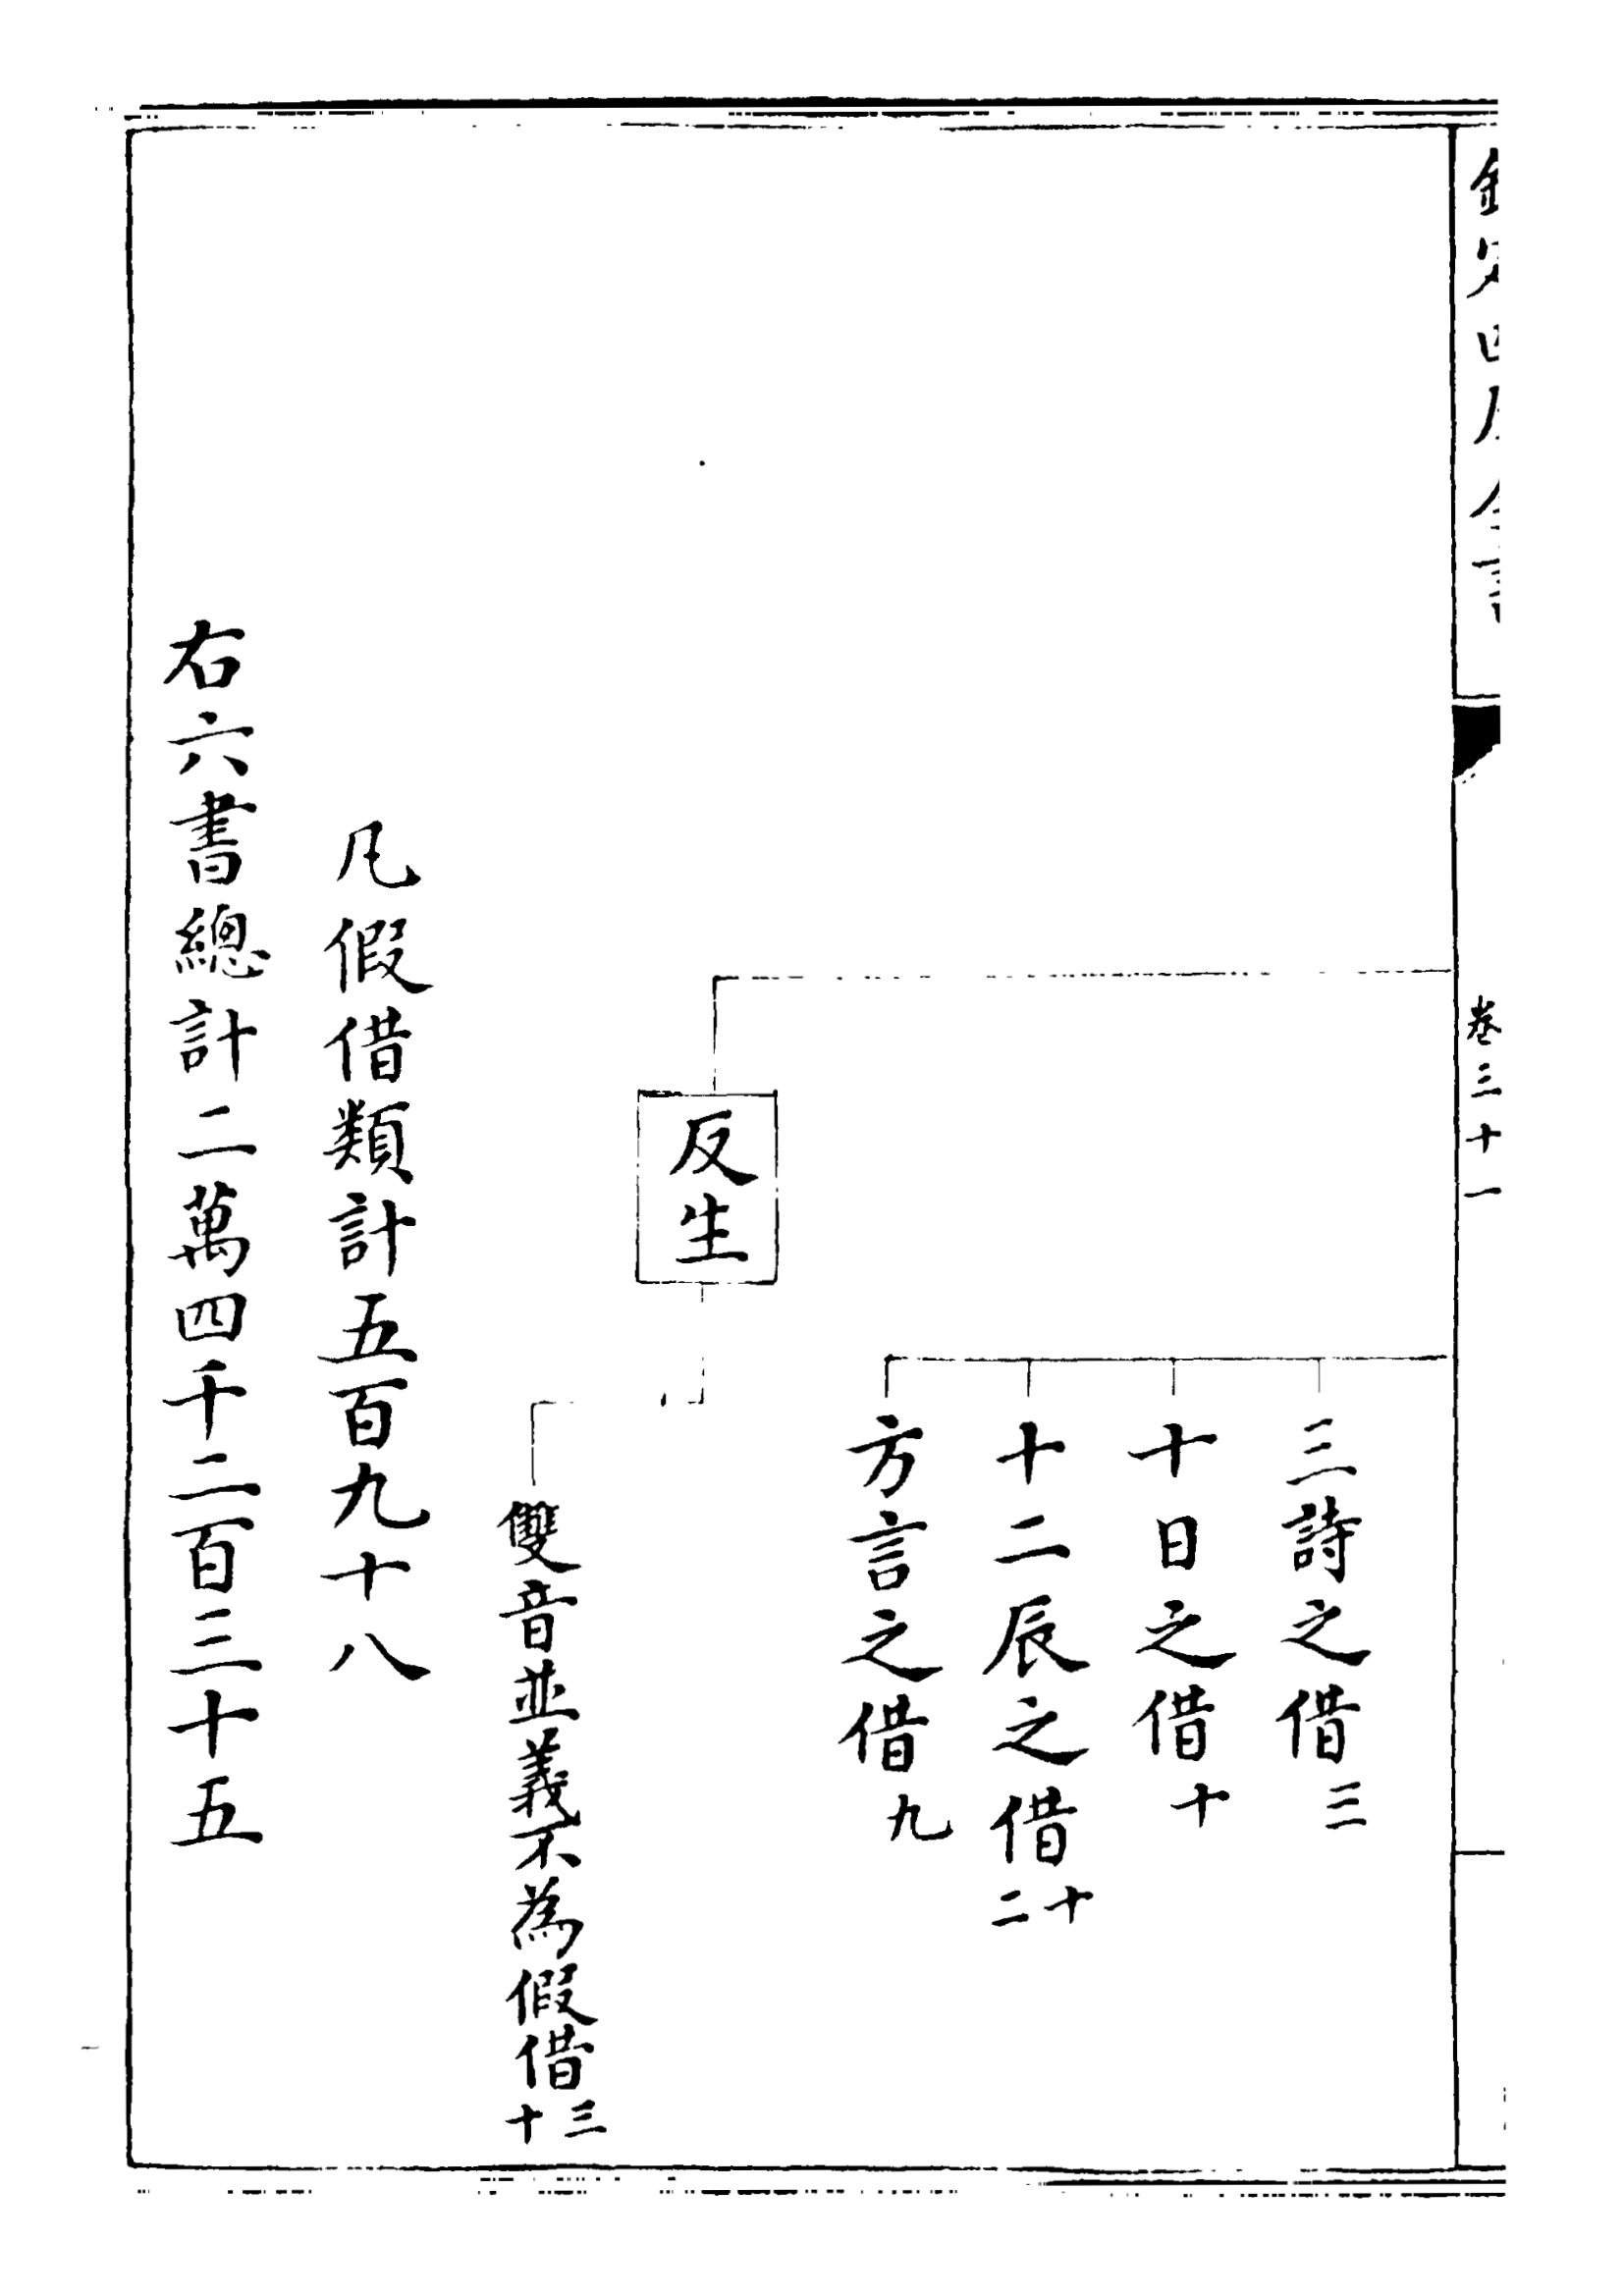 欽定四庫全書
卷三十一
三詩之借三
十日之借十
十二辰之借十二
方言之借九
反生
雙音並義不為假借三十
凡假借類計五百九十八
右六書總計二萬四千二百三十五